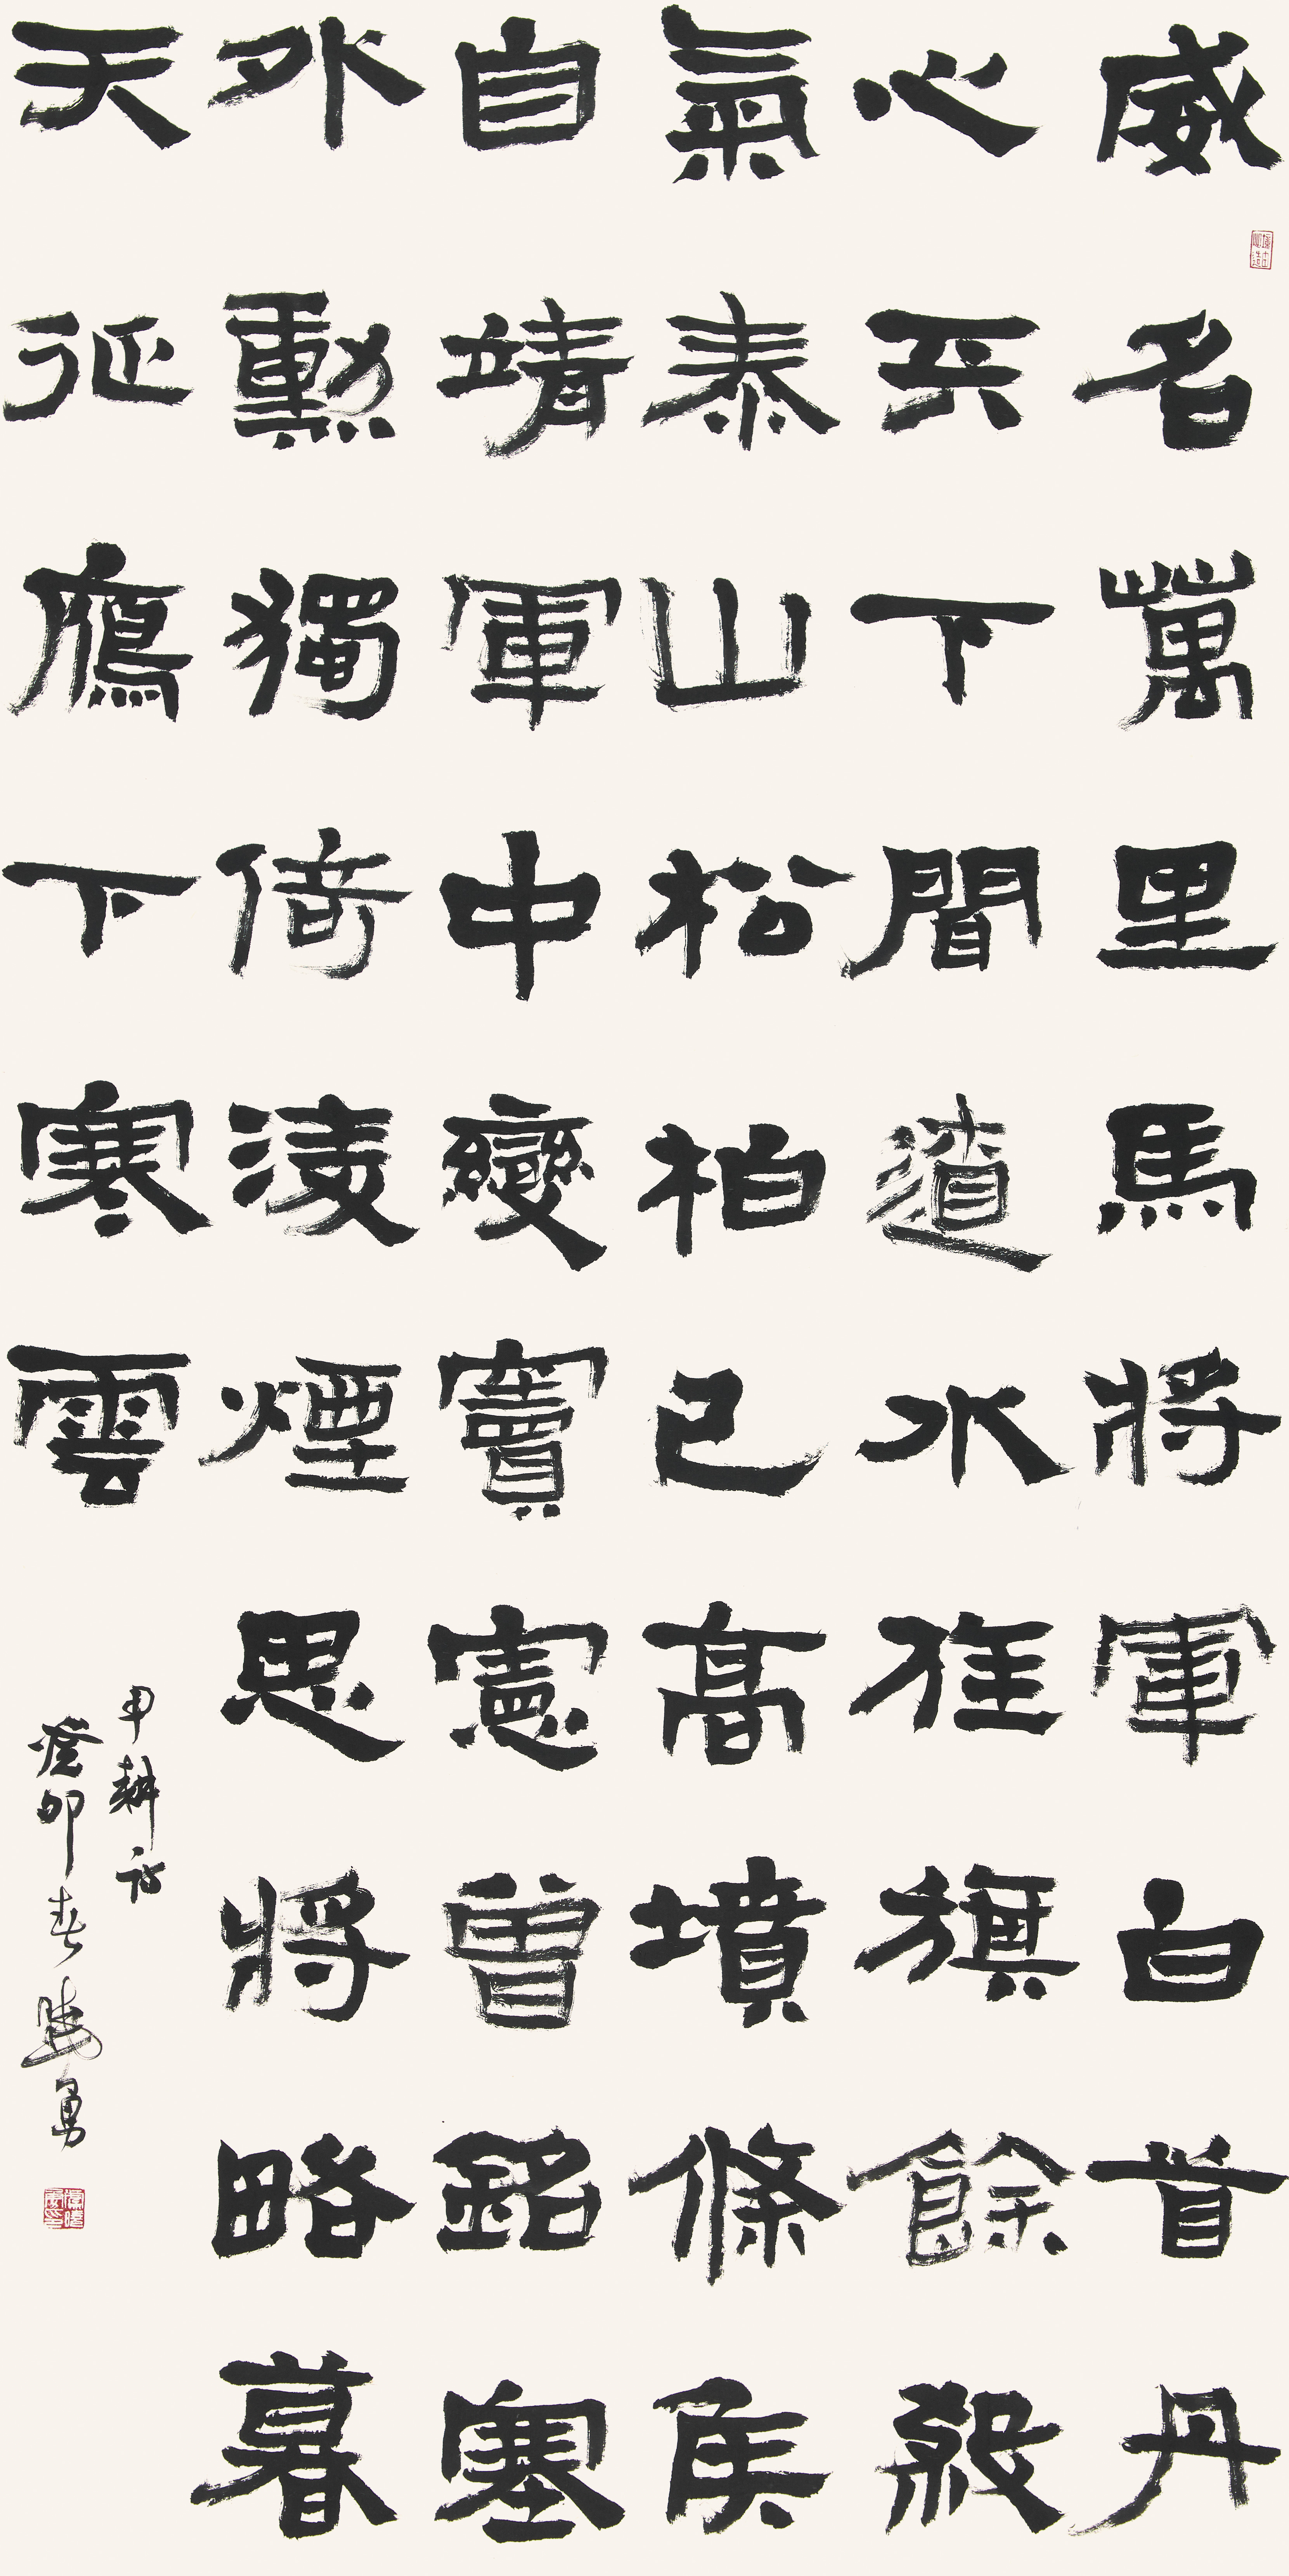 威名萬里馬將軍白首丹
心天下聞遼水旌旗餘殺
氣泰山松柏已高墳條侯
自靖軍中變竇憲曾銘塞
外勳獨倚淩煙思將略暮
天征鴈下寒雲
甲耕詩
癸卯春曉勇